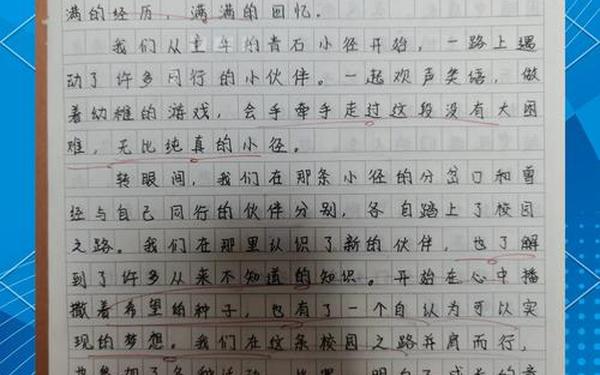 满的经历，满满的回忆.
我们从童年的青石小径开始，一路上遇
动了许多同行的小伙伴。一起欢声笑语，做
着幼稚的游戏，会手牵手走过这段没有大困
难，无比纯真的小径。
转眼间，我们在那条小径的分岔口和曾
经与自己同行的伙伴分别，各自踏上了校园
之路。我们在那里认识了新的伙伴，也了解
到了许多从来不知道的知识。开始在心中播
撒着希望的种子，也有了一个自认为可以实
现的梦想。我们在这条校园之路并肩而行，